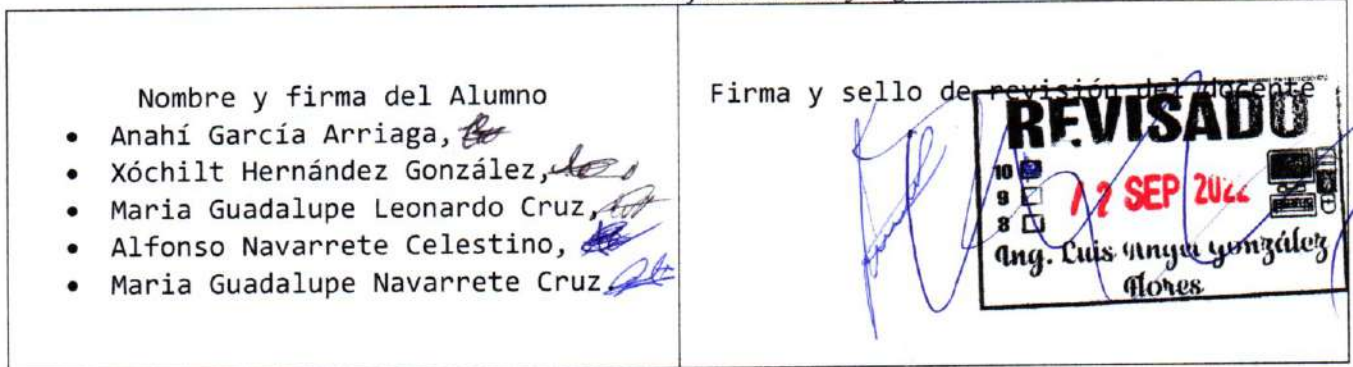 Nombre y firma del Alumno
• Anahí García Arriaga,
• Xóchilt Hernández González,
• Maria Guadalupe Leonardo Cruz,
• Alfonso Navarrete Celestino,
• Maria Guadalupe Navarrete Cruz
Firma y sello de revisión del docente
REVISADO
10
9
8
SEP 2022
Ing. Luis González
Flores